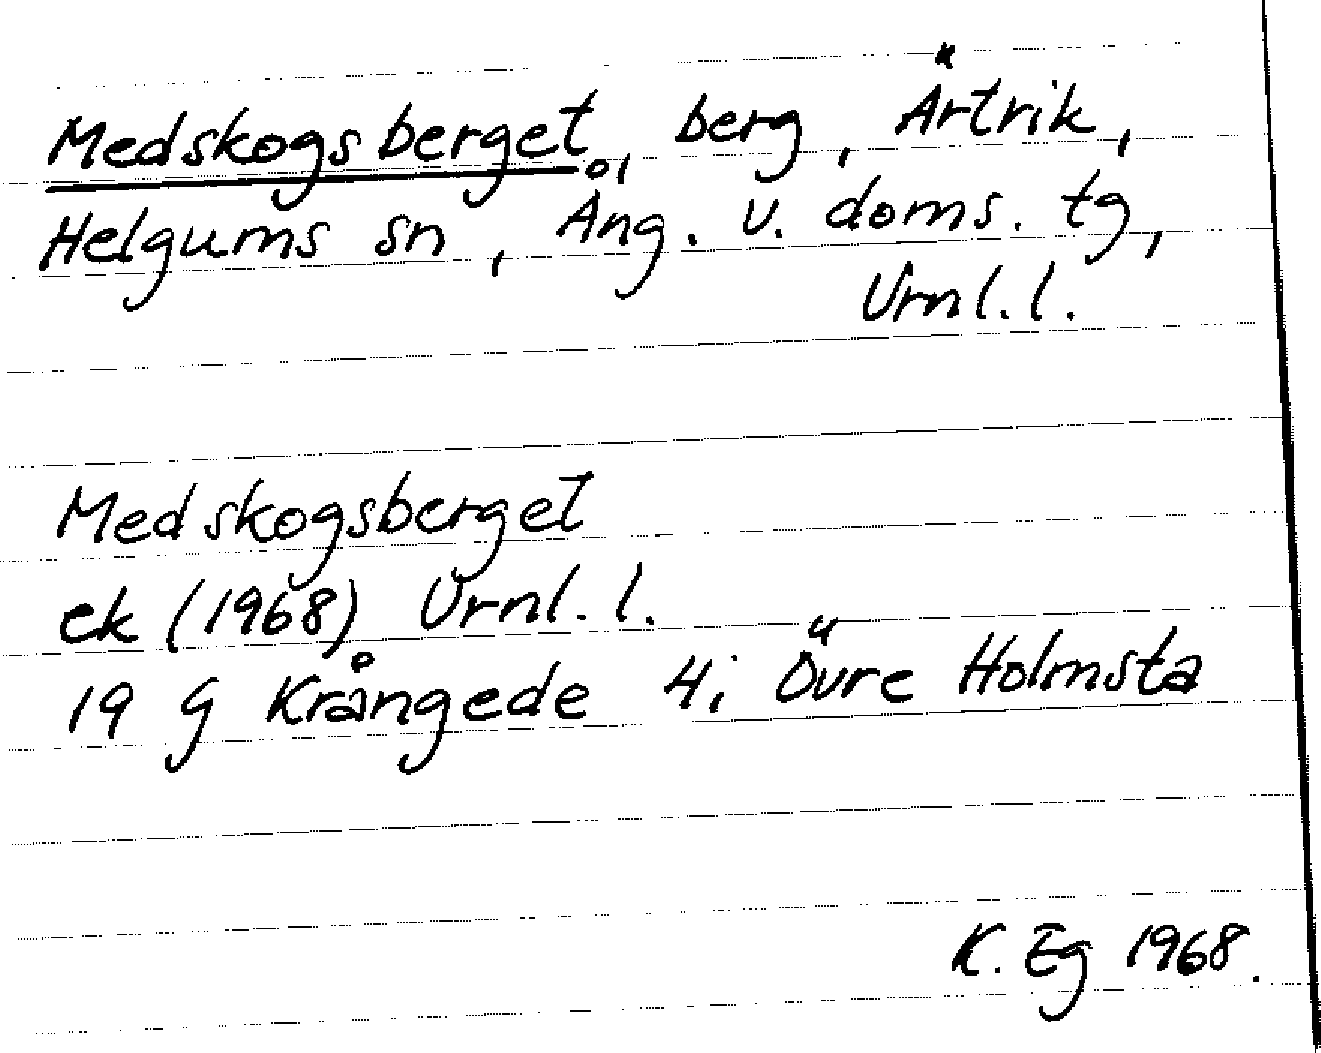 Medskogsberget, berg, Ärtrik,
Helgums sn, Ång. v. doms. tg,
Vrnl. l.
Medskogsberget
ek (1968) Vrnl. l.
19 G Krångede 4i Övre Holmsta
K. Eg 1968.